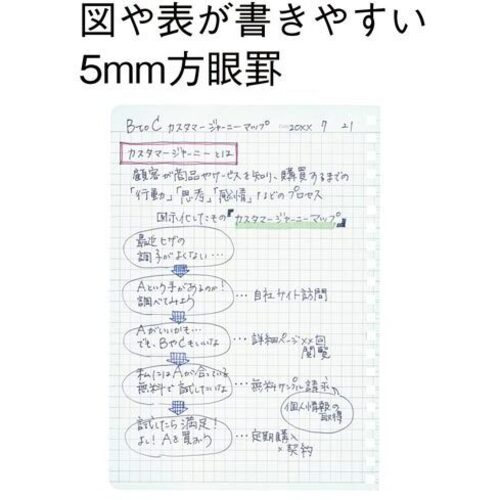 図や表が書きやすい
5mm方眼罫
BtoC カスタマージャーニーマップ 20XX 7 21
カスタマージャーニーとは
顧客が商品やサービスを知り、購買するまでの
「行動」「思考」「感情」などのプロセス
図示化したもの『カスタマージャーニーマップ』
最近ヒザの
調子がよくない…
Aという手があるのか!
調べてみよう
…自社サイト訪問
Aがいいかも…
でも、BやCもいいな
…詳細ページ××回
閲覧
私にはAが合っている
無料で試したいな
…無料サンプル請求
個人情報の
取得
試したら満足!
よし!Aを買おう
…定期購入
×契約